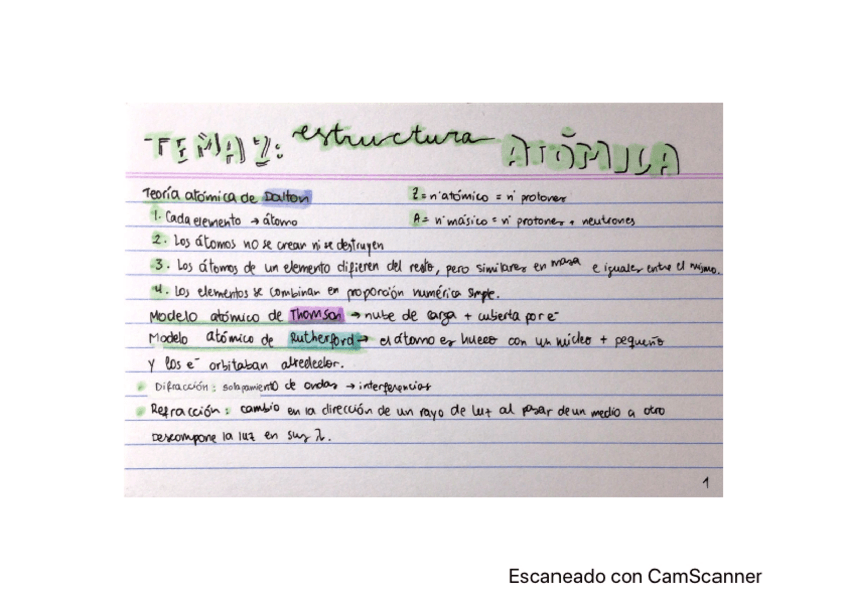 TEMA 2: estructura ATÓMICA
Teoría atómica de Dalton
Z = nº atómico = nº protones
1. Cada elemento → átomo
A = nº másico = nº protones + neutrones
2. Los átomos no se crean ni se destruyen
3. Los átomos de un elemento difieren del resto, pero similares en masa e iguales entre el mismo.
4. Los elementos se combinan en proporción numérica simple.
Modelo atómico de Thomson → nube de carga + cubierta por e⁻
Modelo atómico de Rutherford → el átomo es hueco con un núcleo + pequeño
y los e⁻ orbitaban alrededor.
• Difracción: solapamiento de ondas → interferencias
• Refracción: cambio en la dirección de un rayo de luz al pasar de un medio a otro
Descompone la luz en sus λ.
1
Escaneado con CamScanner